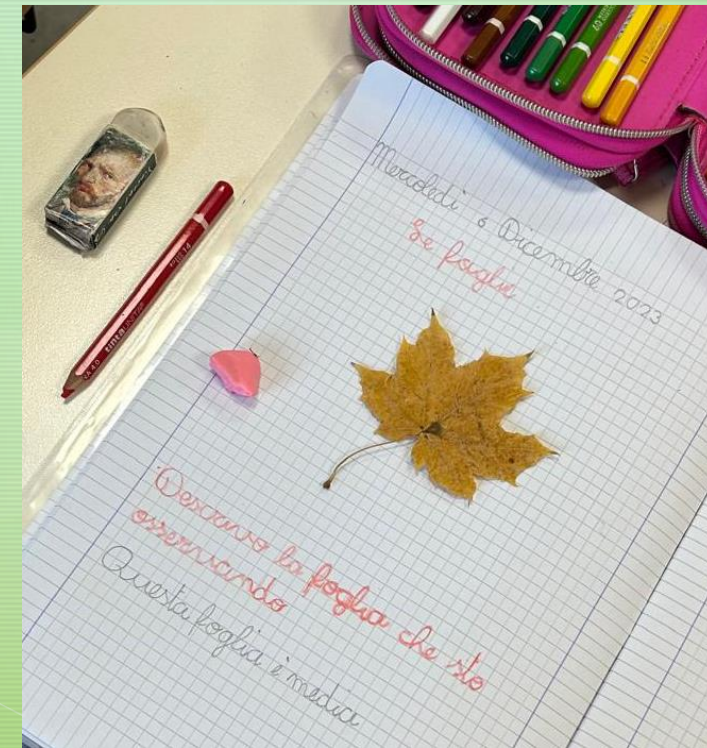 Mercoledì 6 Dicembre 2023
Le foglie
Descrivo la foglia che sto
osservando
Questa foglia è media
tinta